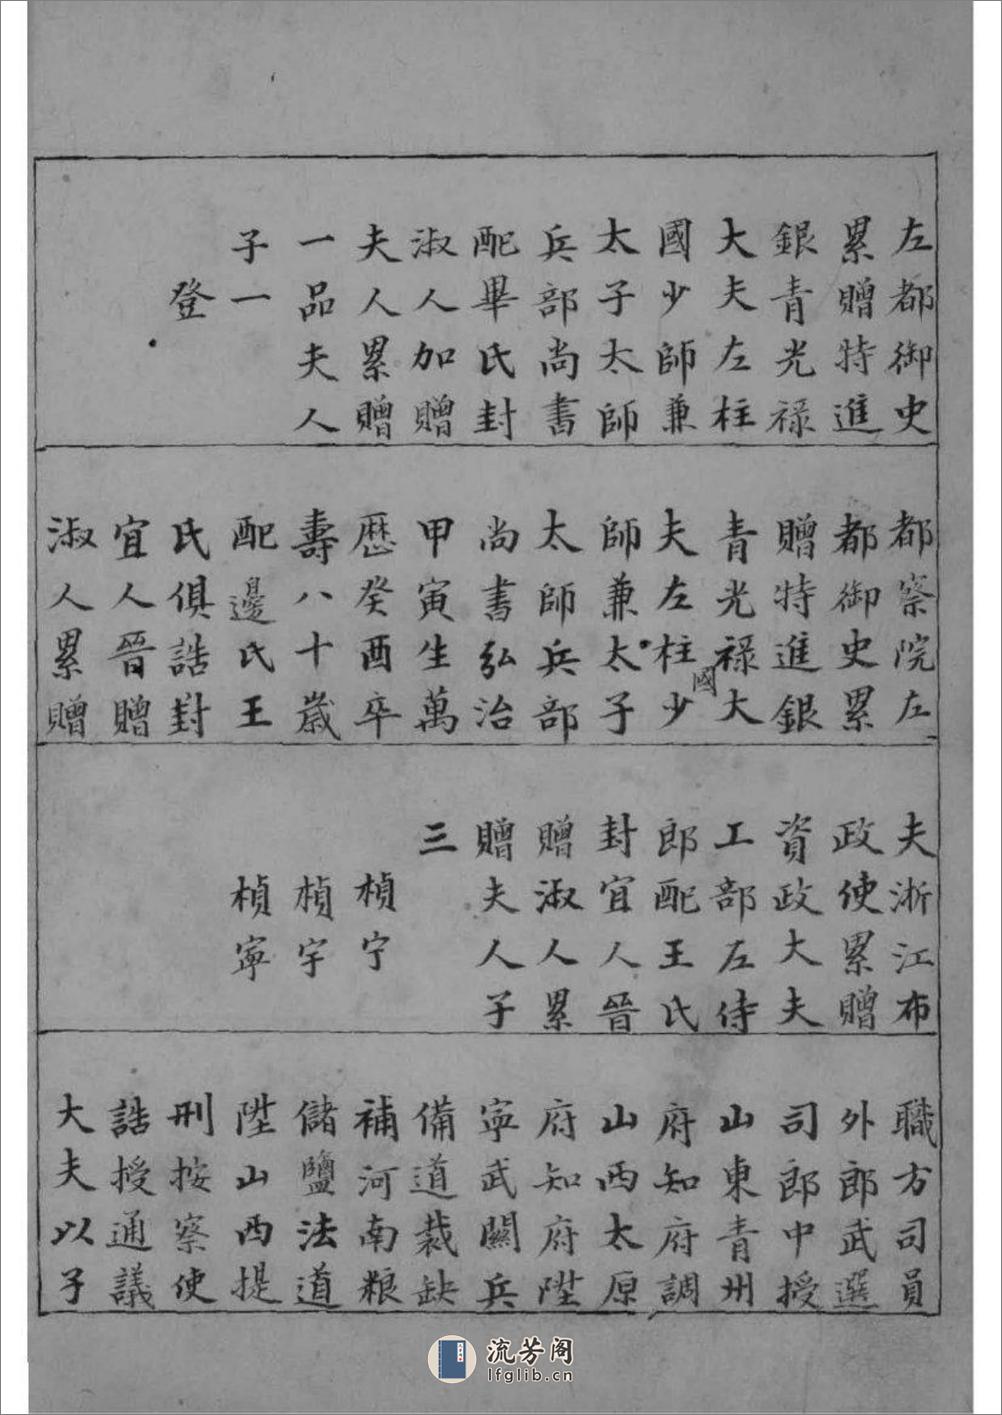 左都御史
累贈特進
銀青光祿
大夫左柱
國少師兼
太子太師
兵部尚書
配畢氏封
淑人加贈
夫人累贈
一品夫人
子一
登
都察院左
都御史累
贈特進銀
青光祿大
夫左柱國少
師兼太子
太師兵部
尚書弘治
甲寅生萬
歷癸酉卒
壽八十歲
配邊氏王
氏俱誥封
宜人晉贈
淑人累贈
夫浙江布
政使累贈
資政大夫
工部左侍
郎配王氏
封宜人晉
贈淑人累
贈夫人子
三
楨宁
楨宇
楨寧
職方司員
外郎武選
司郎中授
山東青州
府知府調
山西太原
府知府陞
寧武關兵
備道裁缺
補河南粮
儲鹽法道
陞山西提
刑按察使
誥授通議
大夫以子
流芳阁
lfglib.cn